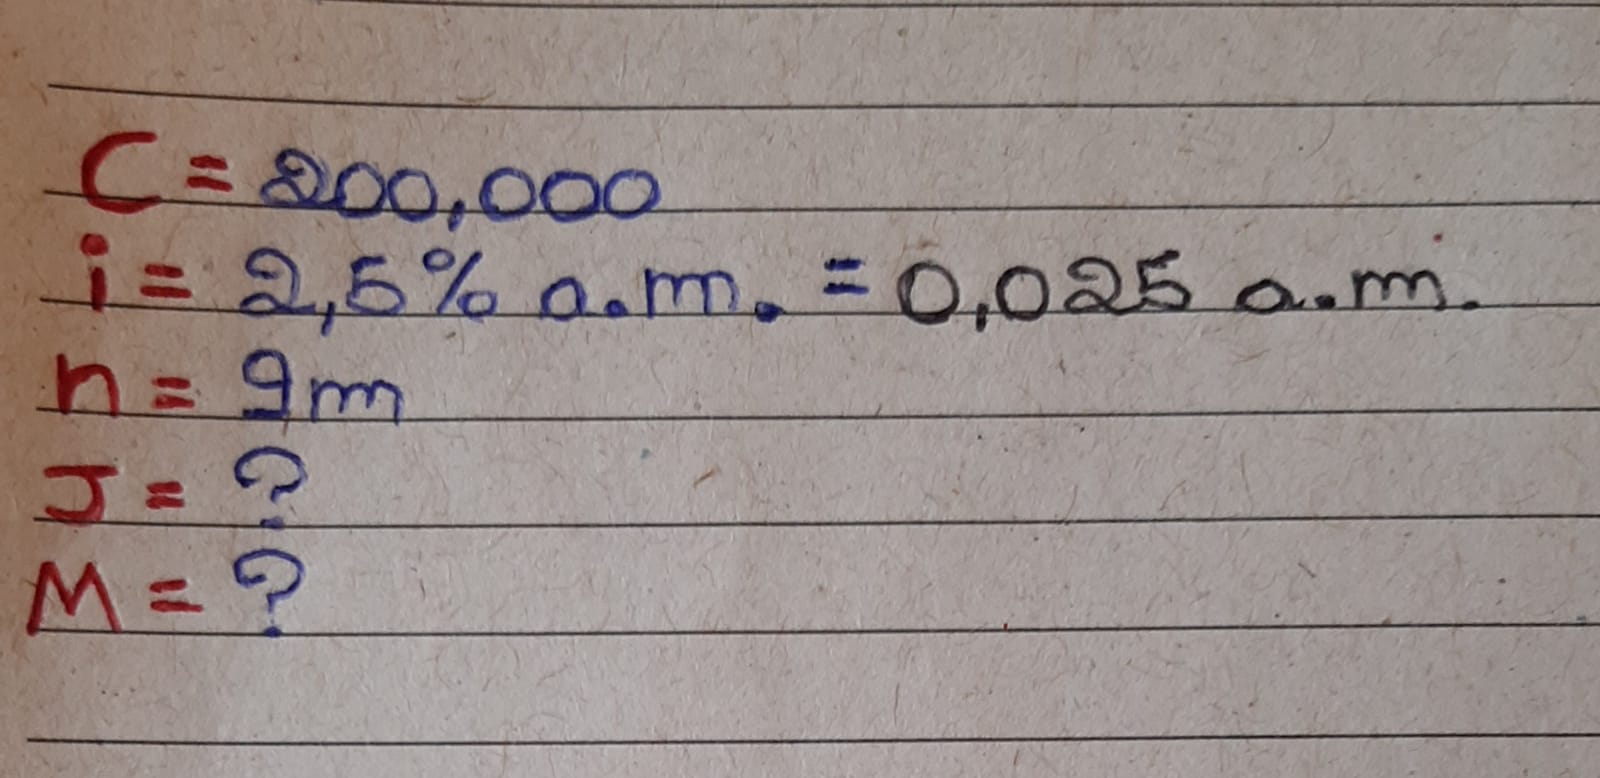 C = 200,000
i = 2,5% a.m. = 0,025 a.m.
n = 9m
J = ?
M = ?